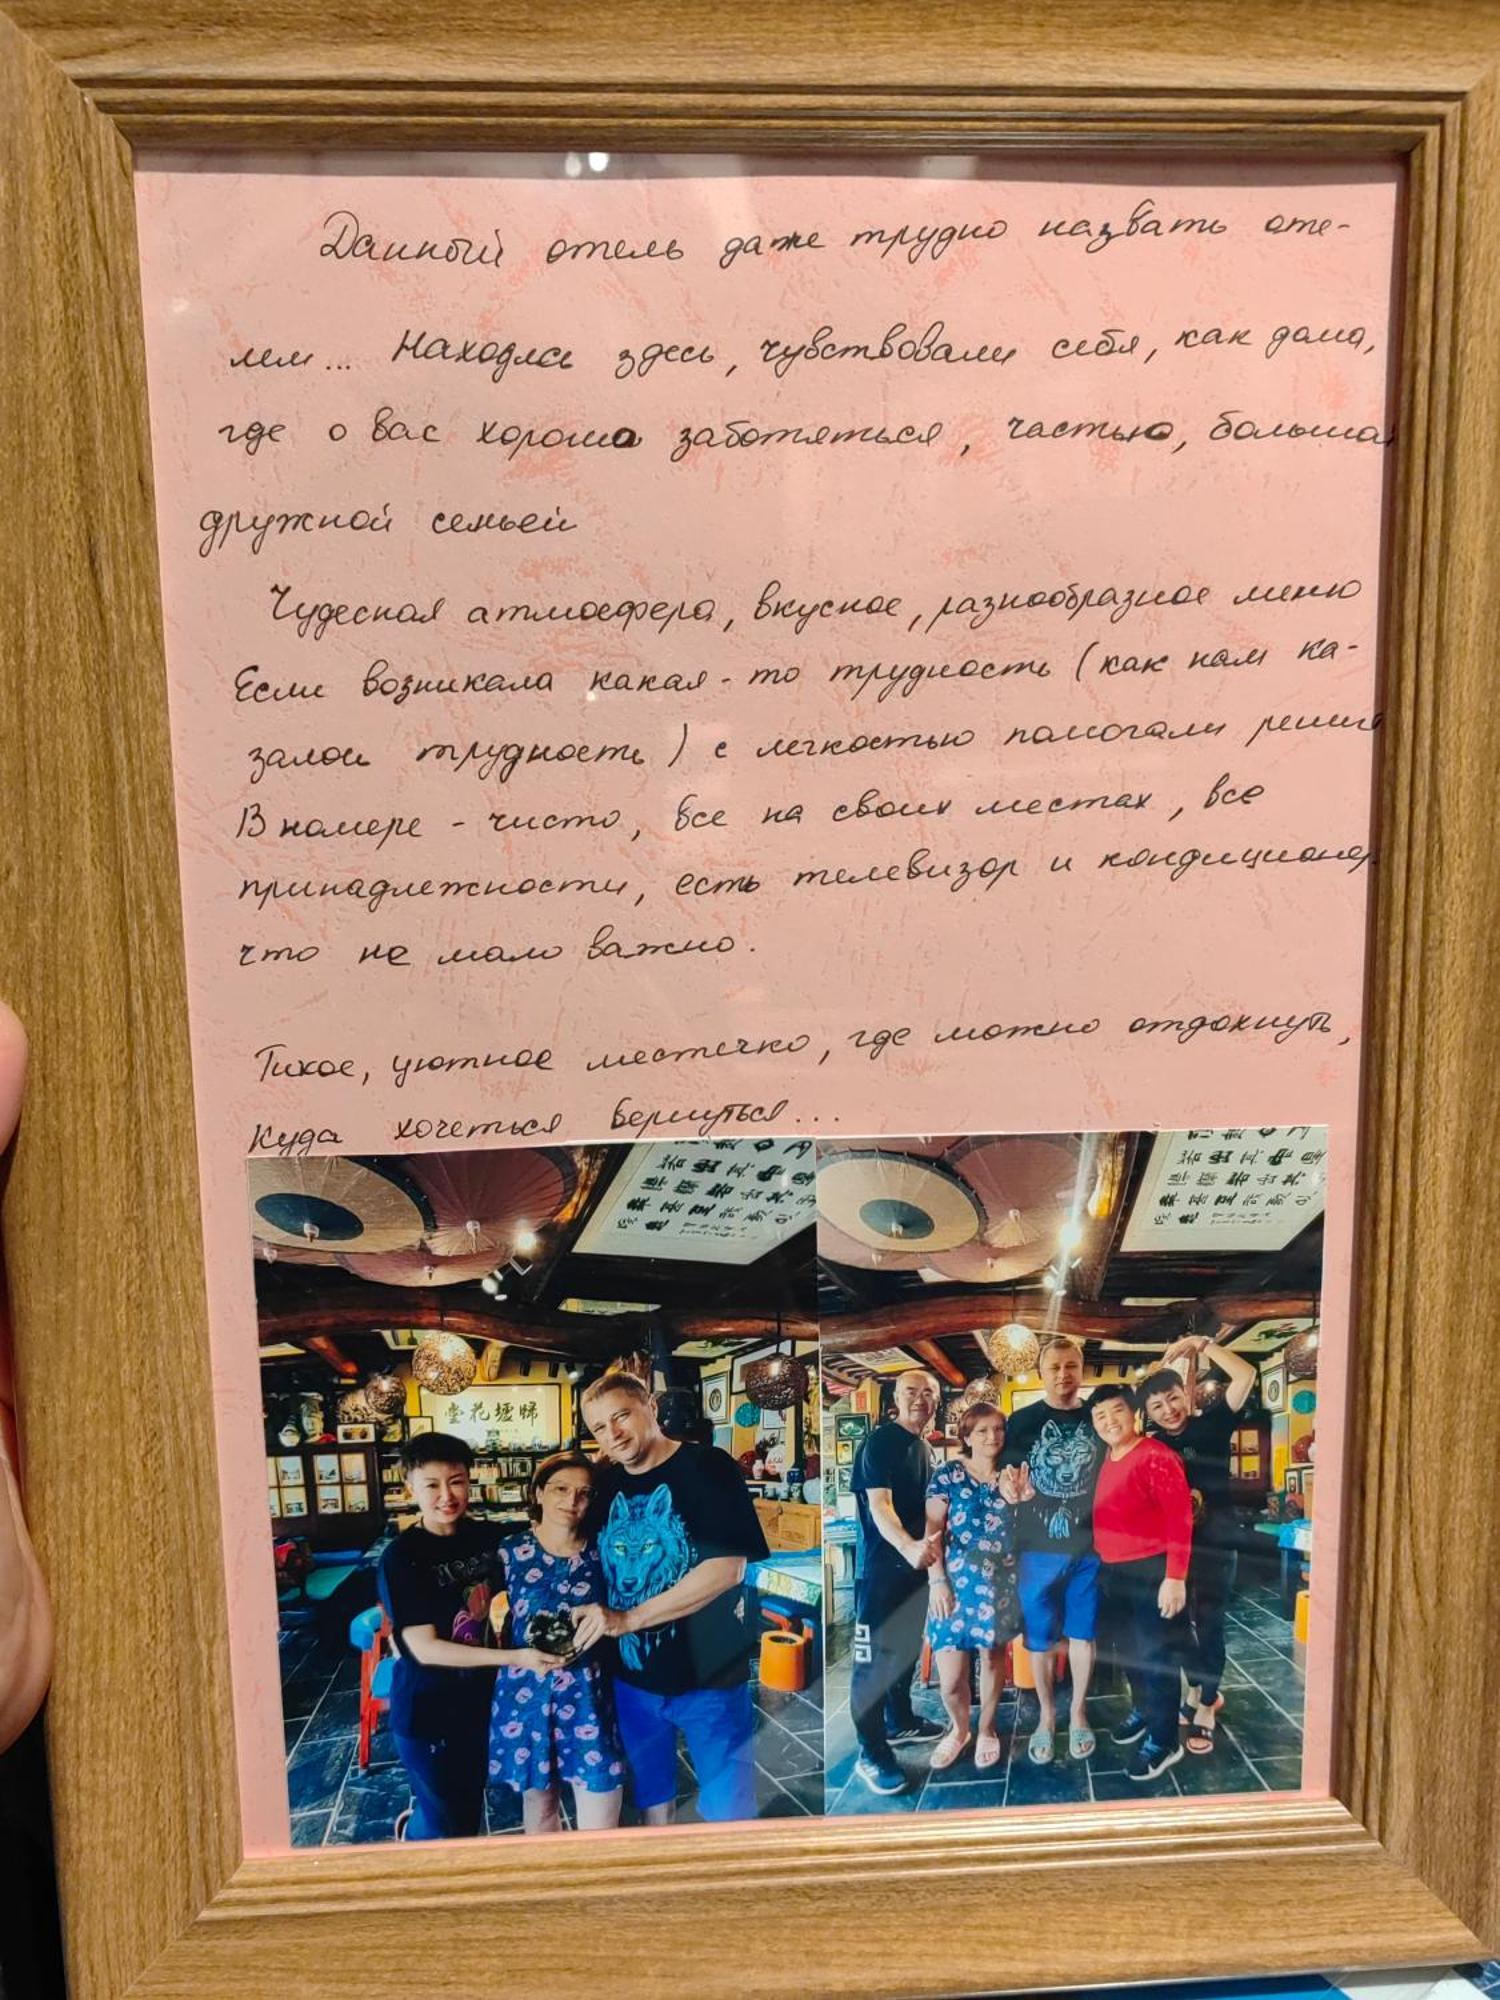 Данный отель даже трудно назвать оте-
лем... Находясь здесь, чувствовали себя, как дома,
где о вас хорошо заботяться, частью, большой
дружной семьей
Чудесная атмосфера, вкусное, разнообразное меню
Если возникала какая-то трудность (как нам ка-
залось трудность) с легкостью помогали решить
В номере - чисто, все на своих местах, все
принадлежности, есть телевизор и кондиционер
что не мало важно.
Тихое, уютное местечко, где можно отдохнуть,
куда хочеться вернуться...
堂花壚歸